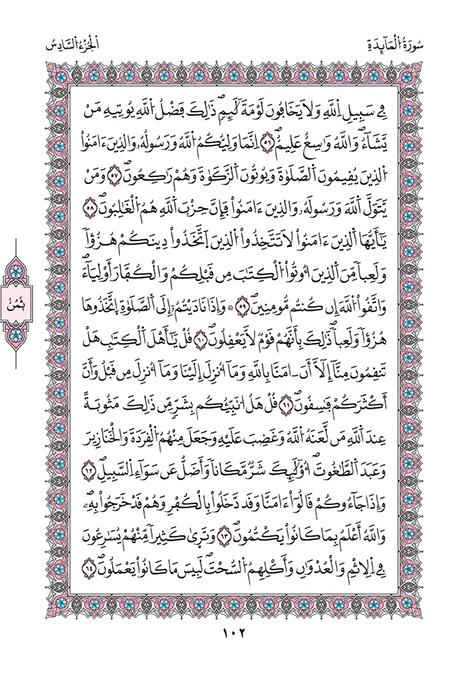 سُورَةُ الْمَآيِدَةِ
الْجُزْءُ السَّادِسُ
فِے سَبِيلِ اِللَّهِ وَلَا يَخَافُونَ لَوْمَةَ لَآئِمٖۖ ذَٰلِكَ فَضْلُ اُللَّهِ يُوتِيهِ مَنْ
يَّشَآءُۖ وَاللَّهُ وَٰسِعٌ عَلِيمٌۖ ٥٦ اِنَّمَا وَلِيُّكُمُ اُللَّهُ وَرَسُولُهُۥ وَالذِينَ ءَامَنُواْ
اُلذِينَ يُقِيمُونَ اَلصَّلَوٰةَ وَيُوتُونَ اَلزَّكَوٰةَ وَهُمْ رَٰكِعُونَۖ ٥٧ وَمَنْ
يَّتَوَلَّ اَللَّهَ وَرَسُولَهُۥ وَالذِينَ ءَامَنُواْ فَإِنَّ حِزْبَ اَللَّهِ هُمُ اُلْغَٰلِبُونَۖ ٥٨
يَٰٓأَيُّهَا اَلذِينَ ءَامَنُواْ لَا تَتَّخِذُواْ اُلذِينَ اَتَّخَذُواْ دِينَكُمْ هُزُؤاً
وَلَعِباً مِّنَ اَلذِينَ أُوتُواْ اُلْكِتَٰبَ مِن قَبْلِكُمْ وَالْكُفَّارَ أَوْلِيَآءَۖ
وَاتَّقُواْ اُللَّهَ إِن كُنتُم مُّومِنِينَۖ ٥٩ ۞ وَإِذَا نَادَيْتُمُۥٓ إِلَى اَلصَّلَوٰةِ اِتَّخَذُوهَا
هُزُؤاً وَلَعِباًۖ ذَٰلِكَ بِأَنَّهُمْ قَوْمٌ لَّا يَعْقِلُونَۖ ٦٠ قُلْ يَٰٓأَهْلَ اَلْكِتَٰبِ هَلْ
تَنقِمُونَ مِنَّآ إِلَّآ أَنَ اٰمَنَّا بِاللَّهِ وَمَآ أُنزِلَ إِلَيْنَا وَمَآ أُنزِلَ مِن قَبْلُ وَأَنَّ
أَكْثَرَكُمْ فَٰسِقُونَۖ ٦١ قُلْ هَلُ ا۟نَبِّئُكُم بِشَرٍّ مِّن ذَٰلِكَ مَثُوبَةً
عِندَ اَللَّهِ مَن لَّعَنَهُ اُللَّهُ وَغَضِبَ عَلَيْهِ وَجَعَلَ مِنْهُمُ اُلْقِرَدَةَ وَالْخَنَازِيرَ
وَعَبَدَ اَلطَّٰغُوتَۖ أُوْلَٰٓئِكَ شَرٌّ مَّكَاناً وَأَضَلُّ عَن سَوَآءِ اِلسَّبِيلِۖ ٦٢
وَإِذَا جَآءُوكُمْ قَالُوٓاْ ءَامَنَّا وَقَد دَّخَلُواْ بِالْكُفْرِ وَهُمْ قَدْ خَرَجُواْ بِهِۦۖ
وَاللَّهُ أَعْلَمُ بِمَا كَانُواْ يَكْتُمُونَۖ ٦٣ وَتَرَىٰ كَثِيراً مِّنْهُمْ يُسَٰرِعُونَ
فِے اِلِاثْمِ وَالْعُدْوَٰنِ وَأَكْلِهِمُ اُلسُّحْتَۖ لَبِيسَ مَا كَانُواْ يَعْمَلُونَۖ ٦٤
ثُمُنُ
١٠٢